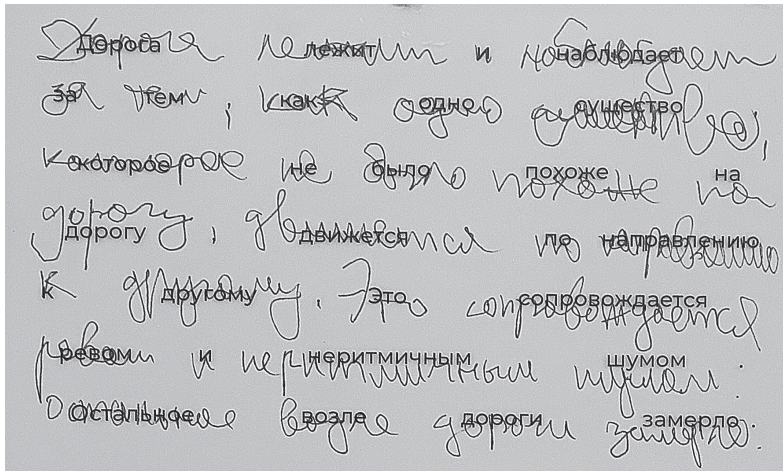 Дорога лежит и наблюдает
за тем, как одно существо,
которое не было похоже на
дорогу, движется по направлению
к другому. Это сопровождается
ревом и неритмичным шумом.
Остальное возле дороги замерло.